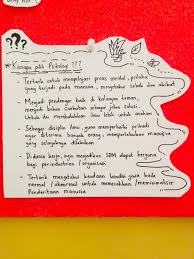 ???
Kenapa pilih Psikologi ???
- Tertarik untuk mempelajari proses mental, prilaku
yang terjadi pada manusia, mengetahui sebab dan akibat
- Menjadi pendengar baik di kalangan teman,
menjadi bahan curhatan sebagai jalan solusi.
Untuk itu membutuhkan ilmu lebih untuk arahan
- Sebagai disiplin ilmu, guna memperbaiki pribadi
agar diterima banyak orang, memperlakukan manusia
yang selayaknya dilakukan
- Di dunia kerja, ingin menjadikan SDM dapat berguna
bagi perindustrian / organisasi
- Tertarik mengetahui keadaan kondisi jiwa baik
normal / abnormal untuk memecahkan / meminimalisir
Penderitaan manusia